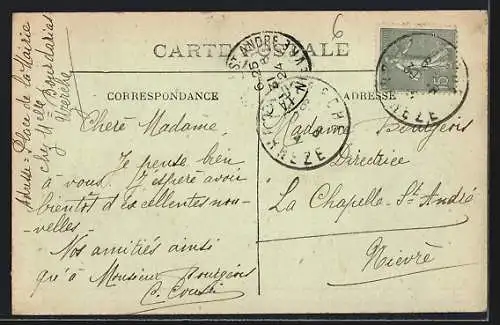 6
CARTE POSTALE
CORRESPONDANCE
ADRESSE
Adresse = Place de la Mairie
chez Mme Bourdarias
Uzerche
Chère Madame,
Je pense bien
à vous. J'espère avoir
bientôt d'excellentes nou-
velles.
Nos amitiés ainsi
qu'à Monsieur Bourgeois
Madame Bourgeois
Directrice
La Chapelle-St-André
Nièvre
ST ANDRE
NIEVRE
UZERCHE
CORREZE
15